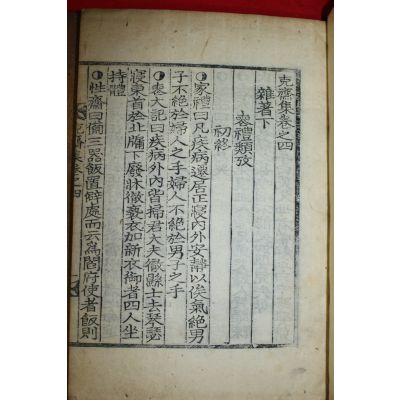 克齋集卷之四
雜著下
喪禮類攷
初終
◑家禮曰凡疾病遷居正寢內外安靜以俟氣絕男
子不絕於婦人之手婦人不絕於男子之手
◑喪大記曰疾病外內皆掃君大夫徹縣士去琴瑟
寢東首於北牖下廢牀徹褻衣加新衣御者四人坐
持體
◑性齋曰備三器飯置僻處而云爲閻府使者飯則
克齋集卷之四